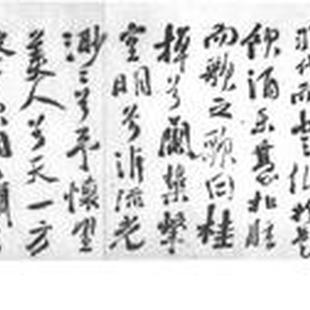 羽化而登仙於是
飲酒樂甚扣舷
而歌之歌曰桂
棹兮蘭槳擊
空明兮泝流光
渺〻兮予懷望
美人兮天一方